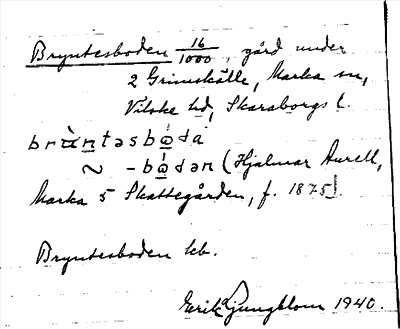 Bryntesboden 16/1000, gård under
2 Grimskälle, Marka sn,
Vilske hd, Skaraborgs l.
bràntəsboda
~ -bodən (Hjalmar Aurell,
Marka 5 Skattegården, f. 1875).
Bryntesboden kb.
Erik Ljungblom 1940.